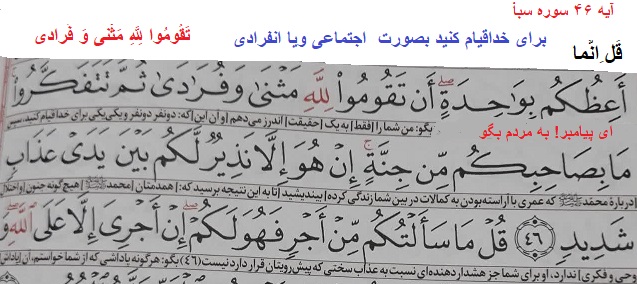 آیه ۴۶ سوره سبأ
برای خداقیام کنید بصورت اجتماعی ویا انفرادی تَقُومُوا لِلَّهِ مَثْنی وَ فُرادی
قُل اِنَّما
أَعِظُكُم بِوَاحِدَةٍ ۖ أَن تَقُومُوا لِلَّهِ مَثْنَىٰ وَفُرَادَىٰ ثُمَّ تَتَفَكَّرُوا
بگو: من شما را [فقط] به یک [حقیقت] اندرز می‌دهم [و آن این] که: دونفر دونفر و یکی‌یکی برای خدا قیام کنید، سپس
ای پیامبر! به مردم بگو
مَا بِصَاحِبِكُم مِّن جِنَّةٍ ۚ إِنْ هُوَ إِلَّا نَذِيرٌ لَّكُم بَيْنَ يَدَىْ عَذَابٍ
[دربارهٔ محمّد ﷺ که عمری با آراسته‌بودن به کمالات در بین شما زندگی کرده] بیندیشید [تا به این نتیجه برسید که:] همدمتان [محمد ﷺ] هیچ‌گونه جنون [و اختلال
شَدِيدٍ ﴿۴۶﴾ قُلْ مَا سَأَلْتُكُم مِّنْ أَجْرٍ فَهُوَ لَكُمْ ۖ إِنْ أَجْرِىَ إِلَّا عَلَى اللَّهِ ۖ وَ
وحی و فکری] ندارد، او برای شما جز هشداردهنده‌ای نسبت به عذاب سختی که پیش رویتان قرار دارد نیست (۴۶) بگو: هرگونه پاداشی که از شما خواستم، آن [پاداش]